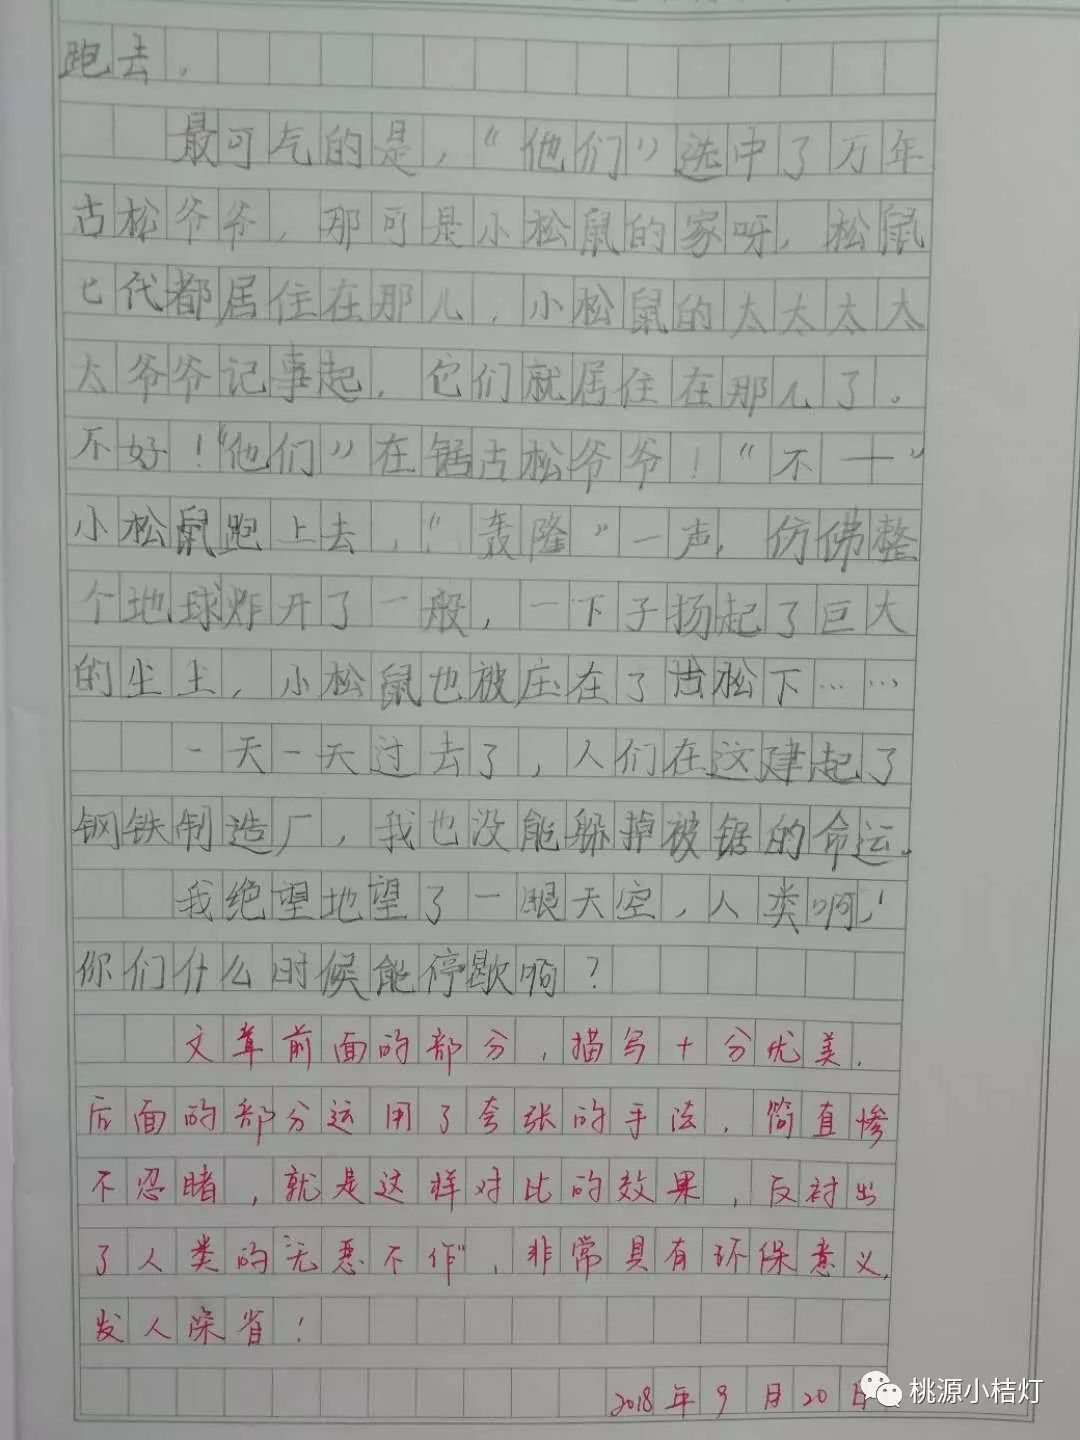 跑去。
最可气的是，“他们”选中了万年
古松爷爷，那可是小松鼠的家呀，松鼠
七代都居住在那儿，小松鼠的太太太太
太爷爷记事起，它们就居住在那儿了。
不好！“他们”在锯古松爷爷！“不——”
小松鼠跑上去，“轰隆”一声，仿佛整
个地球炸开了一般，一下子扬起了巨大
的尘土，小松鼠也被压在了古松下……
一天一天过去了，人们在这建起了
钢铁制造厂，我也没能躲掉被锯的命运。
我绝望地望了一眼天空，人类啊！
你们什么时候能停歇啊？
文章前面的部分，描写十分优美，
后面的部分运用了夸张的手法，简直惨
不忍睹，就是这样对比的效果，反衬出
了人类的“无恶不作”，非常具有环保意义，
发人深省！
2018年9月20日
桃源小桔灯